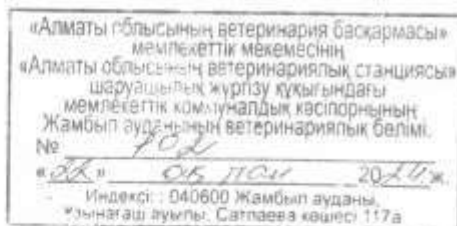 «Алматы облысының ветеринария басқармасы»
мемлекеттік мекемесінің
«Алматы облысының ветеринариялық станциясы»
шаруашылық жүргізу құқығындағы
мемлекеттік коммуналдық кәсіпорнының
Жамбыл ауданының ветеринариялық бөлімі.
№ 702
«22» 2024 ж.
Индексі: : 040600 Жамбыл ауданы,
Ұзынағаш ауылы, Сатпаева көшесі 117а